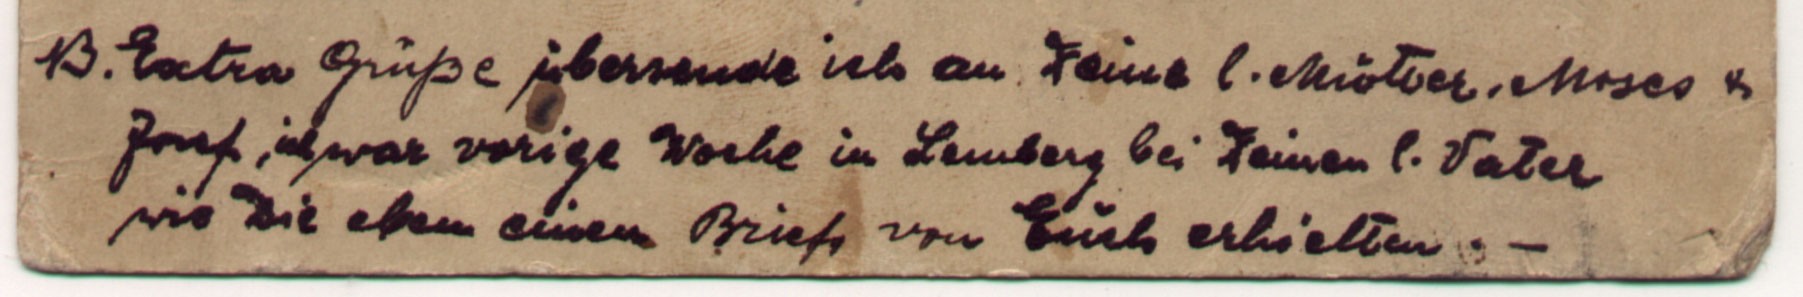 NB. Extra Grüße übersende ich an Deine l. Mutter, Moses &
Josef, ich war vorige Woche in Lemberg bei Deinen l. Vater
wie Die eben einen Brief von Euch erhielten. —